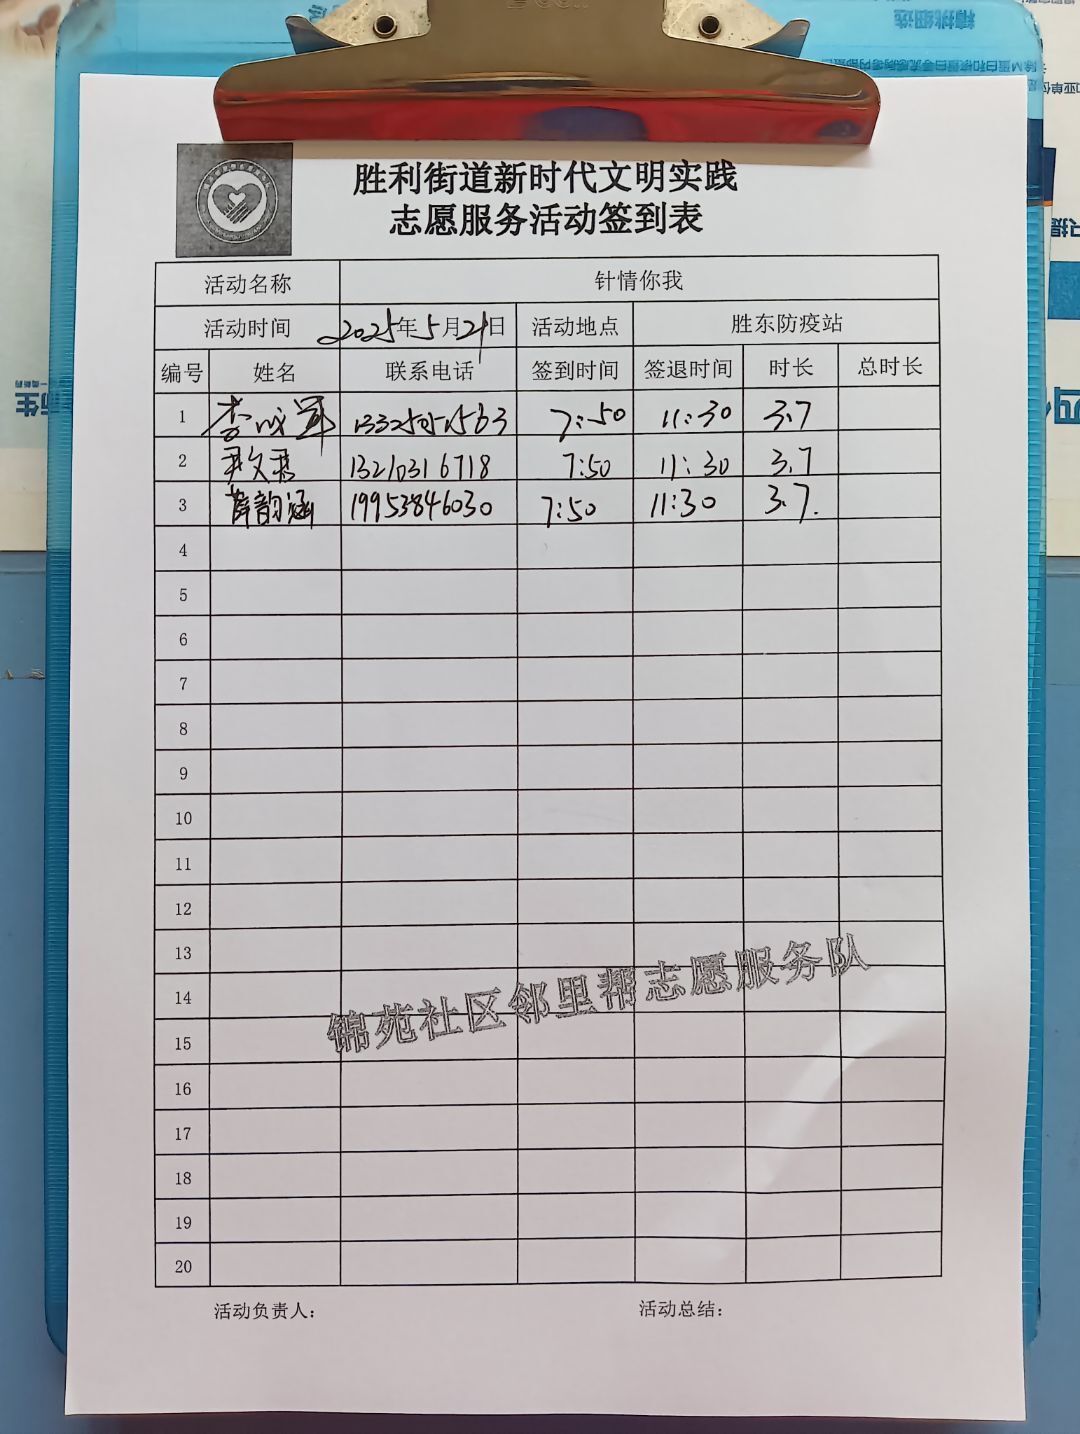 精挑细选
胜利街道新时代文明实践
志愿服务活动签到表
活动名称 针情你我
活动时间 2025年5月21日 活动地点 胜东防疫站
编号 姓名 联系电话 签到时间 签退时间 时长 总时长
1 李 7:50 11:30 3.7
2 尹文 13210316718 7:50 11:30 3.7
3 薛韵涵 19953846030 7:50 11:30 3.7.
4
5
6
7
8
9
10
11
12
13
14
15
16
17
18
19
20
锦苑社区邻里帮志愿服务队
活动负责人: 活动总结: